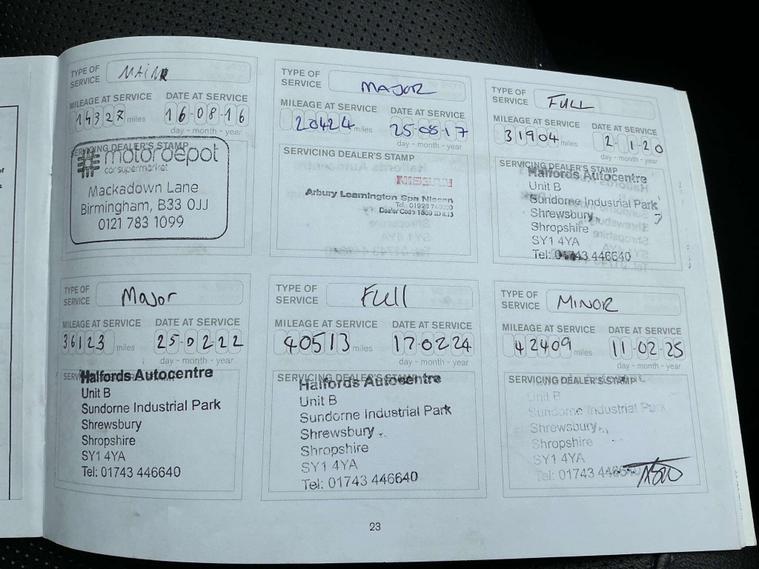 TYPE OF SERVICE
MILEAGE AT SERVICE DATE AT SERVICE
14327 miles 16-08-16
day - month - year
SERVICING DEALER'S STAMP
motordepot
car supermarket
Mackadown Lane
Birmingham, B33 0JJ
0121 783 1099
TYPE OF SERVICE MAJOR
MILEAGE AT SERVICE DATE AT SERVICE
20424 miles 25-08-17
day - month - year
SERVICING DEALER'S STAMP
Arbury Leamington Spa Nissan
TYPE OF SERVICE FULL
MILEAGE AT SERVICE DATE AT SERVICE
31904 miles 2-1-20
day - month - year
SERVICING DEALER'S STAMP
Halfords Autocentre
Unit B
Sundorne Industrial Park
Shrewsbury
Shropshire
SY1 4YA
Tel: 01743 446640
TYPE OF SERVICE Major
MILEAGE AT SERVICE DATE AT SERVICE
36123 miles 25-02-22
day - month - year
Halfords Autocentre
Unit B
Sundorne Industrial Park
Shrewsbury
Shropshire
SY1 4YA
Tel: 01743 446640
TYPE OF SERVICE Full
MILEAGE AT SERVICE DATE AT SERVICE
40513 miles 17-02-24
day - month - year
SERVICING DEALER'S STAMP
Halfords Autocentre
Unit B
Sundorne Industrial Park
Shrewsbury
Shropshire
SY1 4YA
Tel: 01743 446640
TYPE OF SERVICE MINOR
MILEAGE AT SERVICE DATE AT SERVICE
42409 miles 11-02-25
day - month - year
SERVICING DEALER'S STAMP
Unit B
Sundorne Industrial Park
Shrewsbury
Shropshire
SY1 4YA
Tel: 01743
23